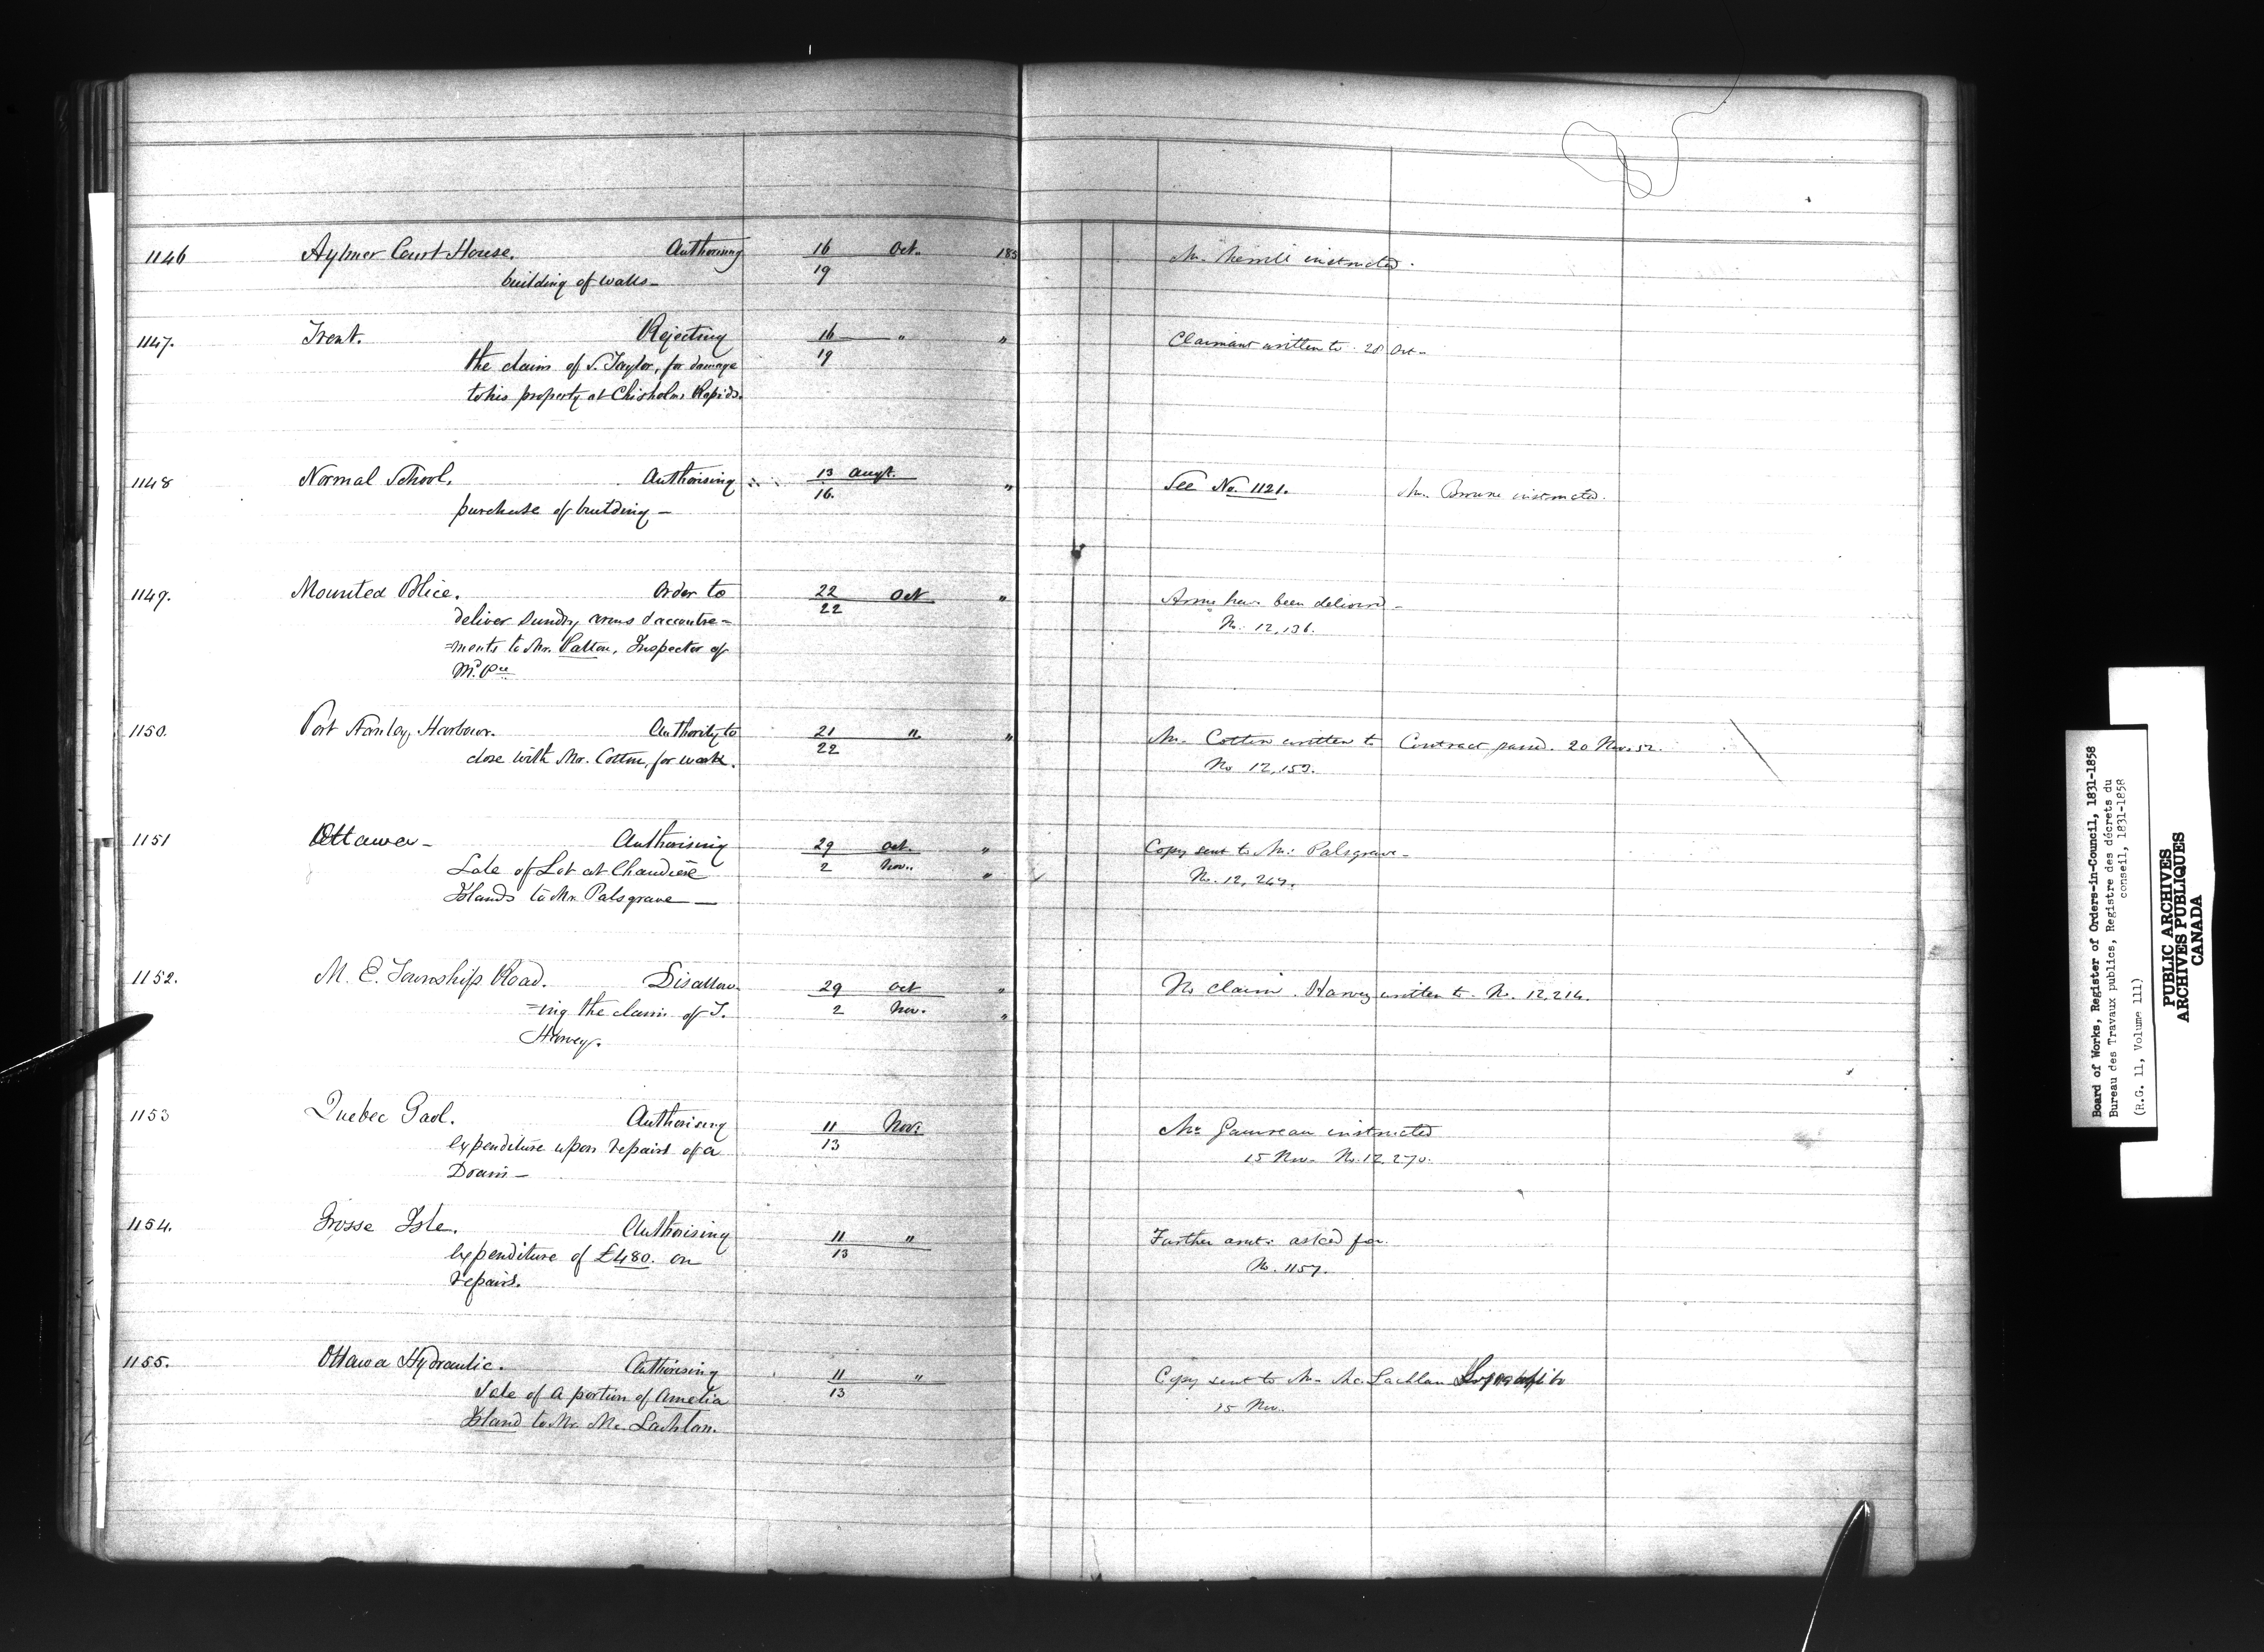 1146 Aylmer Court House. Authorising 16 Oct. 185 Mr. Merrill instructed.
building of walls— 19
1147. Trent. Rejecting 16 " " Claimant written to. 28 Oct—
the claim of S. Taylor, for damage 19
to his property at Chisholms Rapids.
1148 Normal School. Authorising 13 Augt. " See No. 1121. Mr. Browne instructed.
purchase of building — 16.
1149. Mounted Police. Order to 22 Oct " Arms have been delivered—
deliver sundry arms & accoutre= 22 No. 12,136.
=ments to Mr. Patton, Inspector of
Md. Pce
1150. Port Stanley Harbour. Authority to 21 " " Mr. Cotton written to Contract passed. 20 Nov. 52.
close with Mr. Cotton, for work. 22 No 12,153.
1151 Ottawa— Authorising 29 Oct. " Copy sent to Mr. Palsgrave—
Sale of Lot at Chaudière 2 Nov. " No. 12,247.
Islands to Mr. Palsgrave —
1152. M. E. Townships Road. Disallow- 29 Oct " No claim. Harvey written to. No. 12,214.
=ing the claim of T. 2 Nov. "
Harvey.
1153 Quebec Gaol. Authorising 11 Nov: Mr. Gauvreau instructed
expenditure upon repairs of a 13 15 Nov— No. 12,270.
Drain—
1154. Grosse Isle. Authorising 11 " Further amt: asked for.
expenditure of £480. on 13 No. 1157.
repairs.
1155. Ottawa Hydraulic. Authorising 11 " Copy sent to Mr. McLachlan
Sale of a portion of Amelia 13 15 Nov.
Island to Mr. Mc.Lachlan.
Board of Works, Register of Orders-in-Council, 1831-1858
Bureau des Travaux publics, Registre des décrets du
conseil, 1831-1858
(R.G. 11, Volume 111)
PUBLIC ARCHIVES
ARCHIVES PUBLIQUES
CANADA